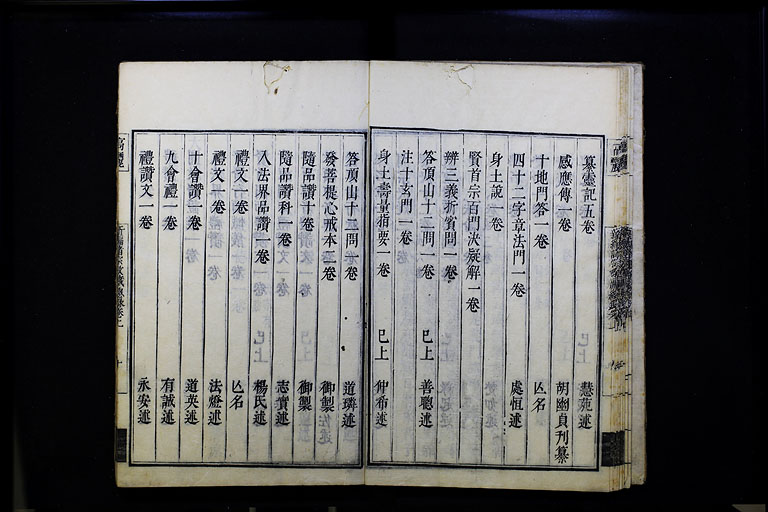 纂靈記五卷 慧苑述
感應傳一卷 胡幽貞刊纂
十地門答一卷 亾名
四十二字章法門一卷 處恒述
身土說一卷
賢首宗百門決疑解一卷
辨三義折賓問一卷
答頂山十二問一卷 已上 善聰述
注十玄門一卷
身土壽量指要一卷 已上 仲希述
答頂山十三問一卷 道璘述
發菩提心戒本二卷 御製
隨品讚十卷 御製
隨品讚科一卷 志實述
入法界品讚一卷 已上 楊氏述
禮文一卷 亾名
禮文一卷 法燈述
十會讚一卷 道英述
九會禮一卷 有誠述
禮讚文一卷 永安述